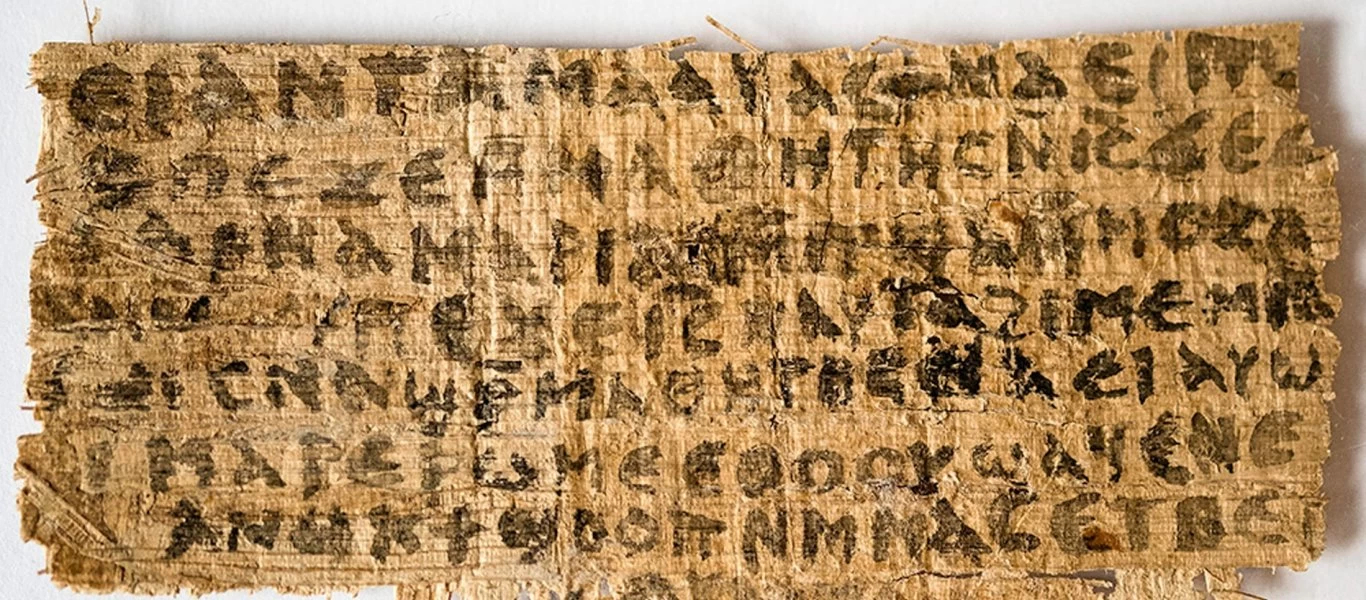 ⲉⲓ ⲁⲛ ⲧⲁⲙⲁⲁⲩ ⲁⲥϯ ⲛⲁⲉⲓ
ⲡⲉϫⲉ ⲙⲙⲁⲑⲏⲧⲏⲥ ⲛⲓ̅ⲥ̅ ϫⲉ ⲥ
ⲁⲣⲛⲁ ⲙⲁⲣⲓⲁⲙ
ⲡⲉϫⲉ ⲓ̅ⲥ̅ ⲛⲁⲩ ⲧⲁϩⲓⲙⲉ ⲙⲛ
ⲥⲛⲁϣⲣ̅ⲙⲁⲑⲏⲧⲏⲥ ⲛⲁⲉⲓ ⲁⲩⲱ
ⲓ ⲙⲁⲣⲉⲣⲱⲙⲉ ⲉⲑⲟⲟⲩ ϣⲁϥⲉ ⲛⲉ
ⲁⲛⲟⲕ ϯϣⲟⲟⲡ ⲛⲙⲙⲁⲥ ⲉⲧⲃⲉ